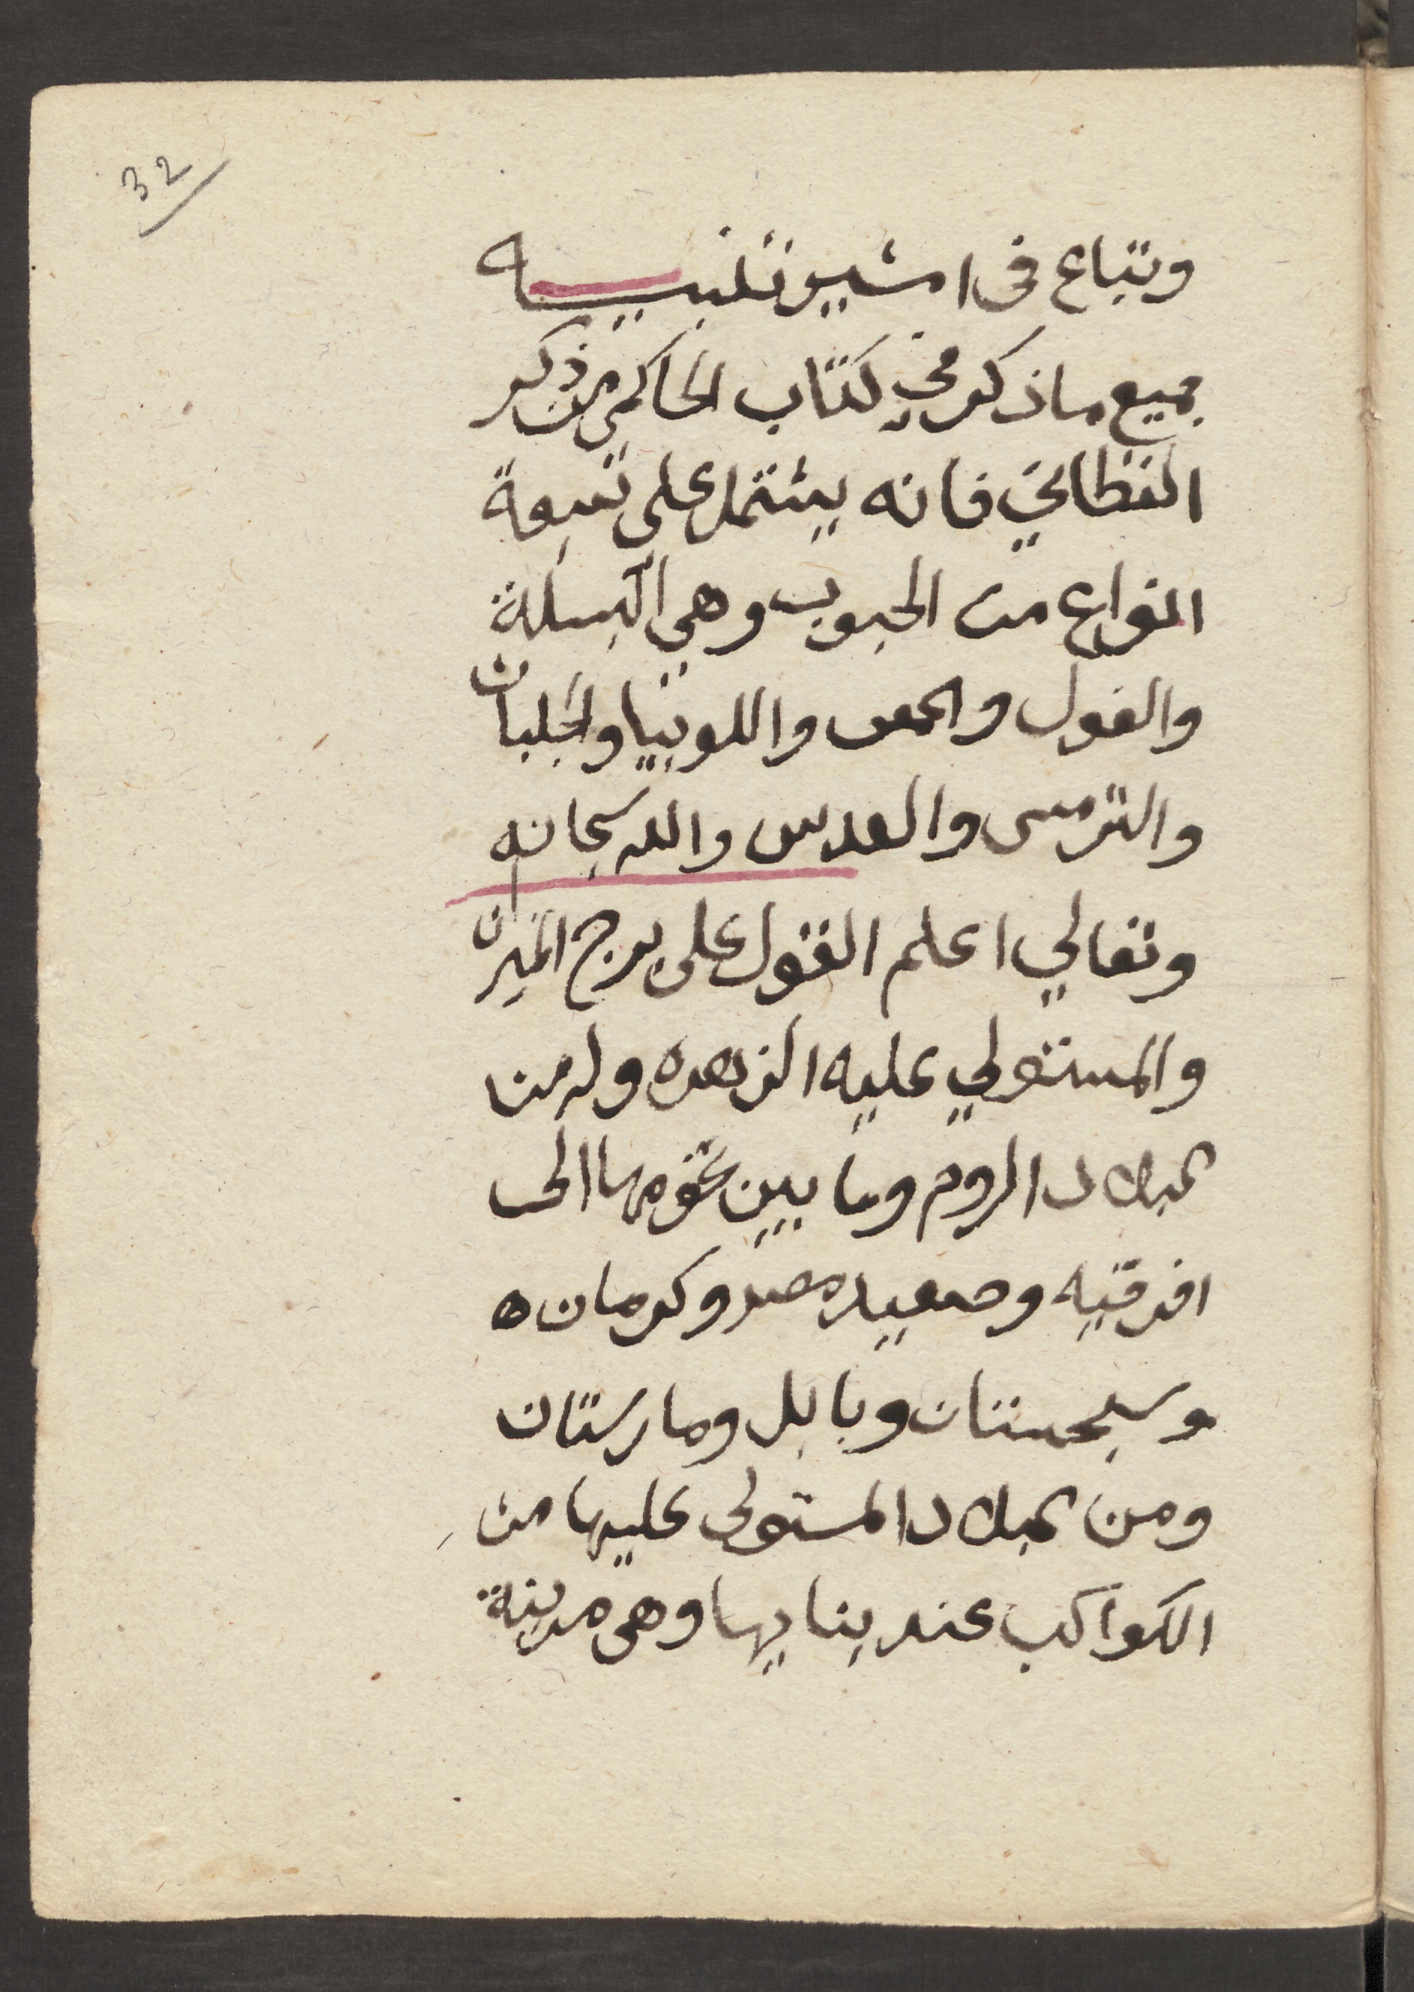 32
وتباع فى امشير تنبيه
جميع ما ذكر في كتاب الحاكمى من ذكر
القطاني فانه يشتمل على تسعة
انواع من الحبوب وهي البسلة
والفول والحمص واللوبيا والجلبان
والترمس والعدس والله سبحانه
وتعالي اعلم القول على برج الميزان
والمستولي عليه الزهره وله من
البلاد الروم وما بين تخومها الى
افرقيه وصعيد مصر وكرمان ه
وسجستان وبابل ومارستان
ومن البلاد المستولى عليها من
الكواكب عند بنايها وهى مدينة